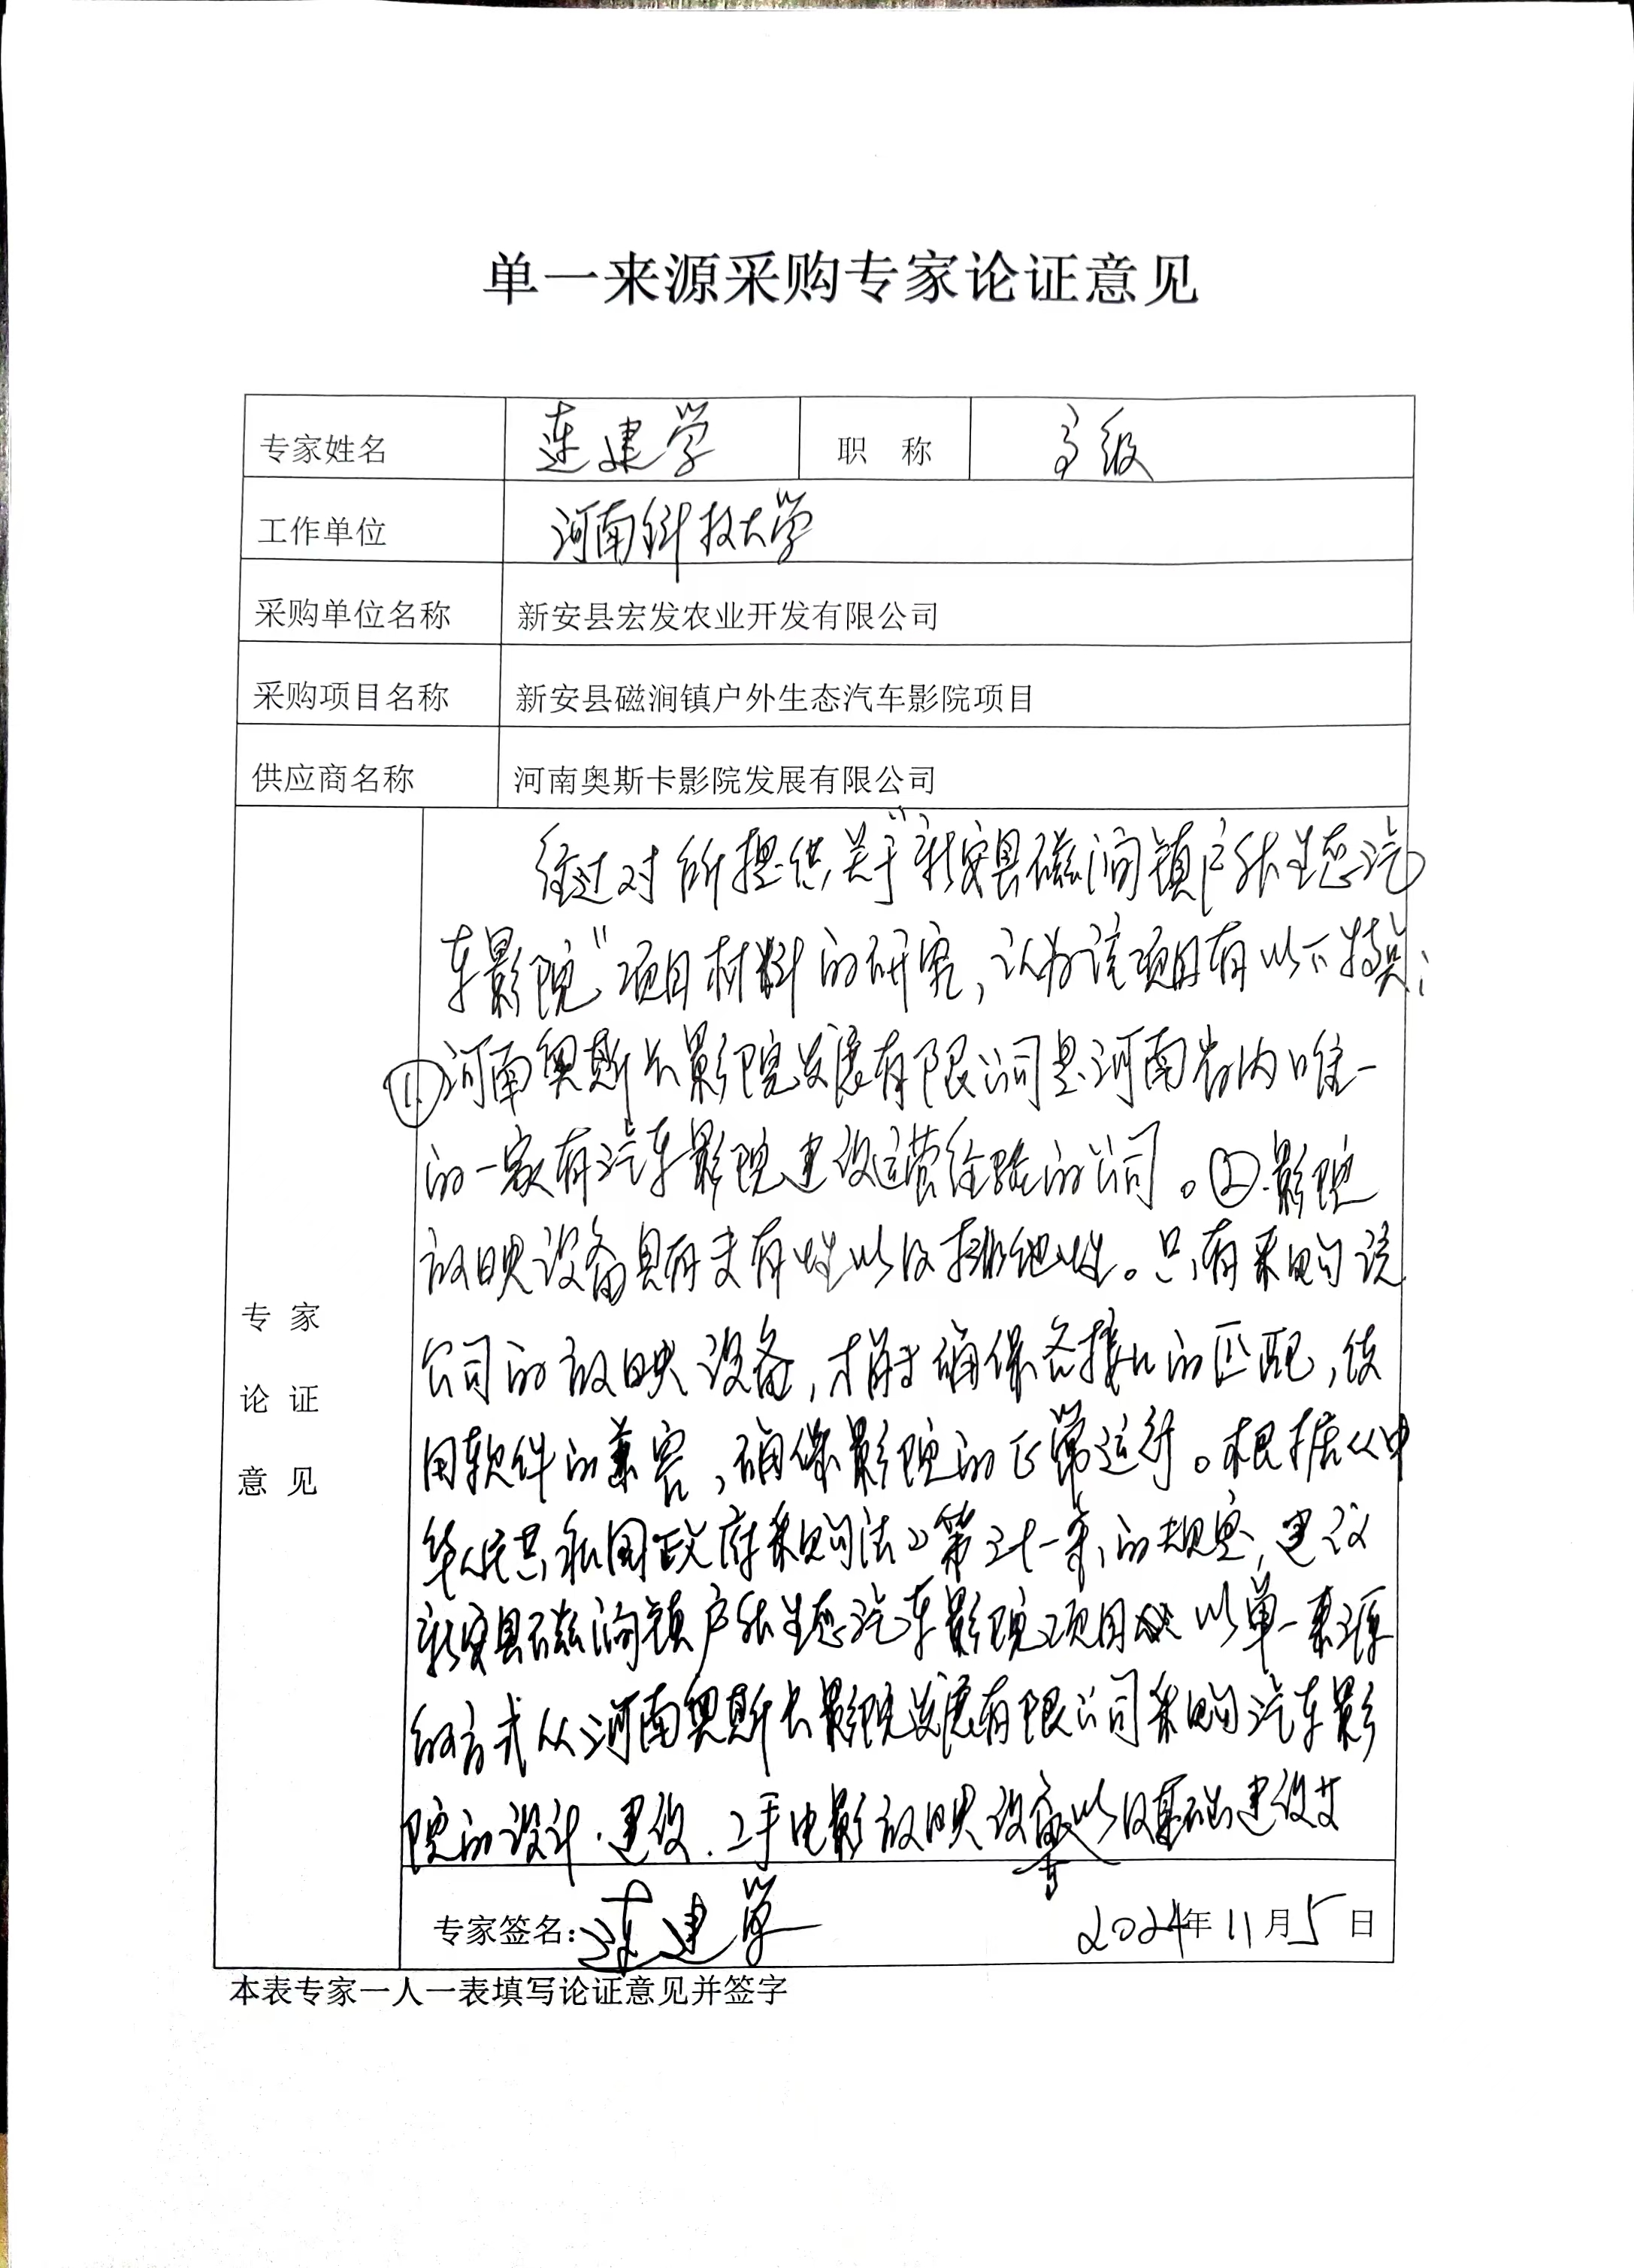 单一来源采购专家论证意见
专家姓名 连建学 职称 高级
工作单位 河南科技大学
采购单位名称 新安县宏发农业开发有限公司
采购项目名称 新安县磁涧镇户外生态汽车影院项目
供应商名称 河南奥斯卡影院发展有限公司
专家
论证
意见
经过对所提供关于“新安县磁涧镇户外生态汽
车影院”项目材料的研究,认为该项目有以下特点:
①河南奥斯卡影院发展有限公司是河南省内唯一
的一家有汽车影院建设运营经验的公司。②.影院
放映设备具有专有性以及排他性。只有采购该
公司的放映设备,才能确保各接口的匹配,使
用软件的兼容,确保影院的正常运行。根据《中
华人民共和国政府采购法》第三十一条,的规定,建议
新安县磁涧镇户外生态汽车影院项目 以单一来源
的方式从河南奥斯卡影院发展有限公司采购汽车影
院的设计.建设.二手电影放映设备以及基础建设
专家签名: 连建学 2024年11月5日
本表专家一人一表填写论证意见并签字